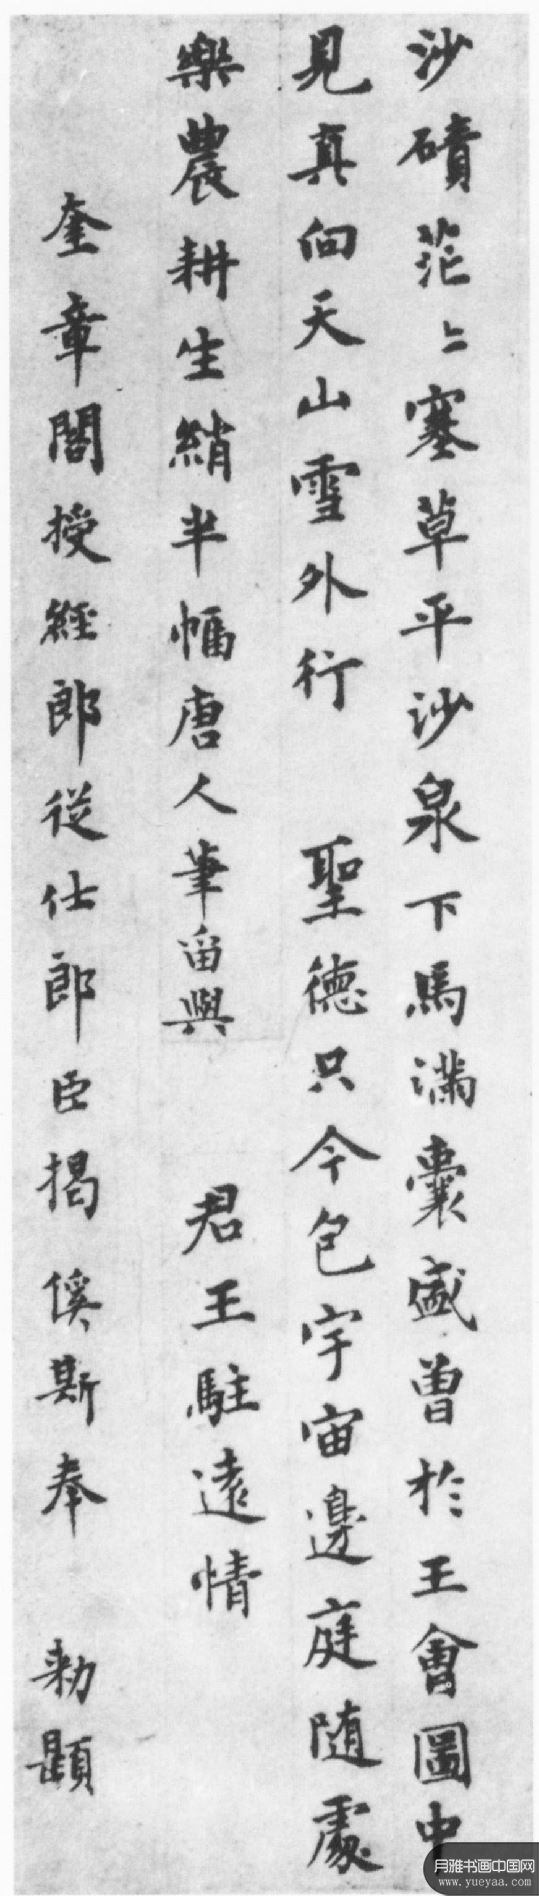 沙磧茫〻塞草平沙泉下馬滿囊盛曽於王會圖中
見真向天山雪外行　聖德只今包宇宙邊庭随處
樂農耕生綃半幅唐人筆畱與　君王駐遠情
奎章閣授經郎從仕郎臣揭傒斯奉　勑題
月雅书画中国网
www.yueyaa.com